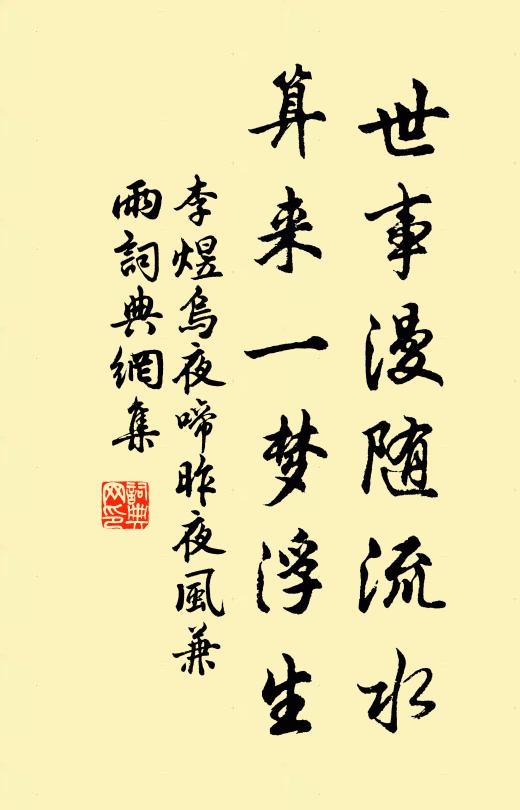 世事漫随流水
算来一梦浮生
李煜烏夜啼昨夜風兼
雨詞典網集
詞典
网印